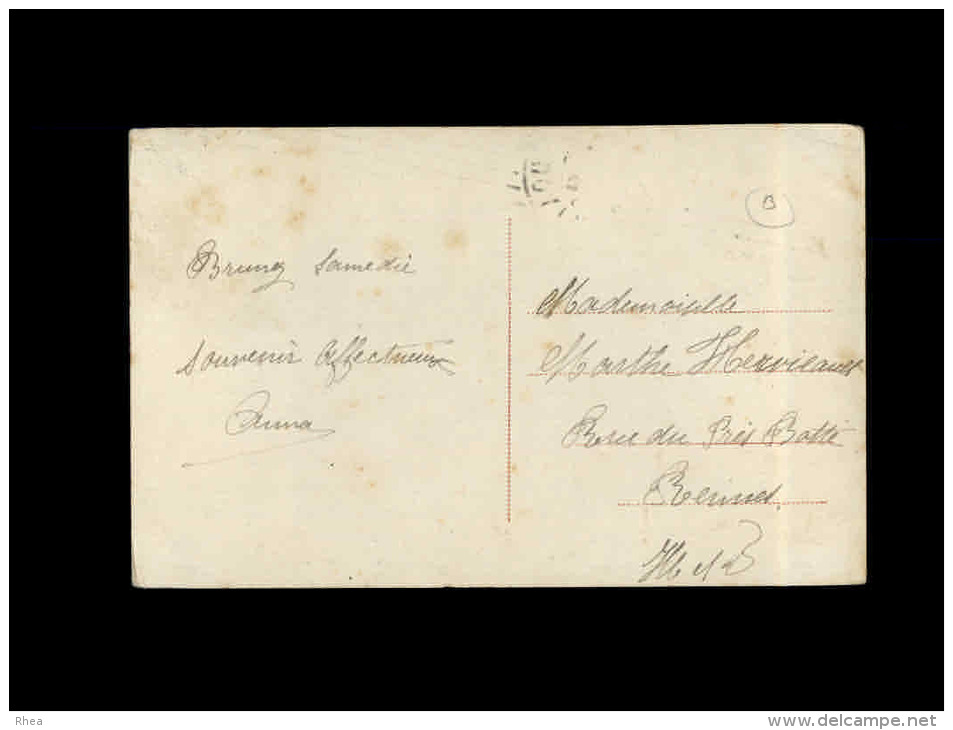 Bruz Samedie
Souvenir affectueux
Anna
B
Mademoiselle
Marthe Hervieault
Rue du Prés Botté
Rennes
Ille et V
Rhea
www.delcampe.net